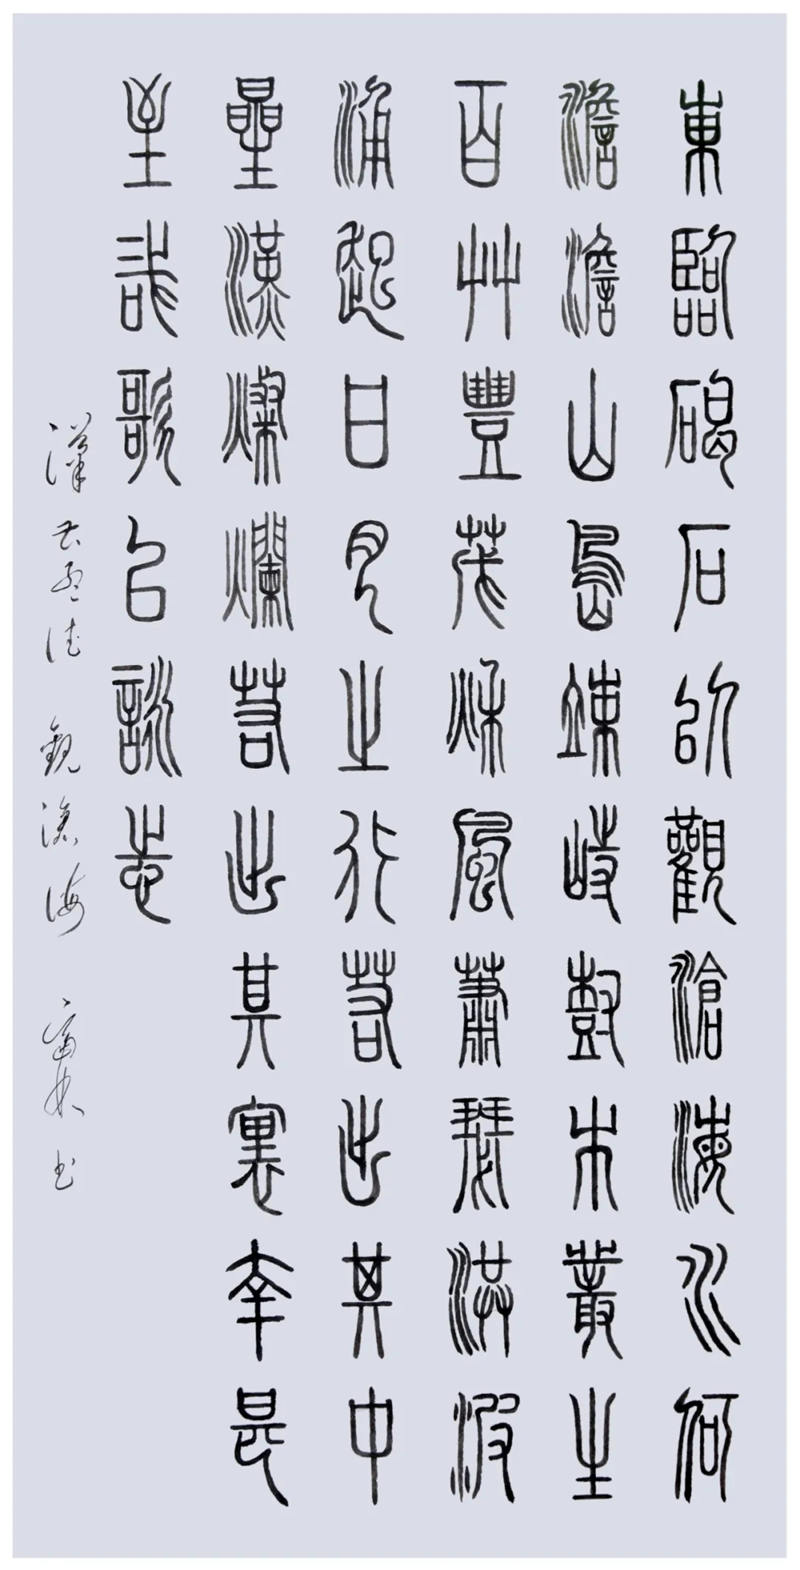 東臨碣石以觀滄海水何
澹澹山島竦峙樹木叢生
百艸豐茂秋風蕭瑟洪波
涌起日月之行若出其中
星漢燦爛若出其裏幸甚
至哉歌以詠志
漢曹孟德 觀滄海 富林书